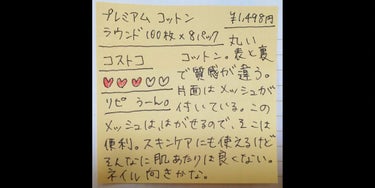 プレミアム コットン ¥1,498円
ラウンド 100枚×8パック
コストコ
♥♥♥♡♡
リピ うーん。
丸い
コットン。表と裏
で質感が違う。
片面はメッシュが
付いている。この
メッシュは、はがせるので、そこは
便利。スキンケアにも使えるけど
そんなに肌あたりは良くない。
ネイル向きかな。